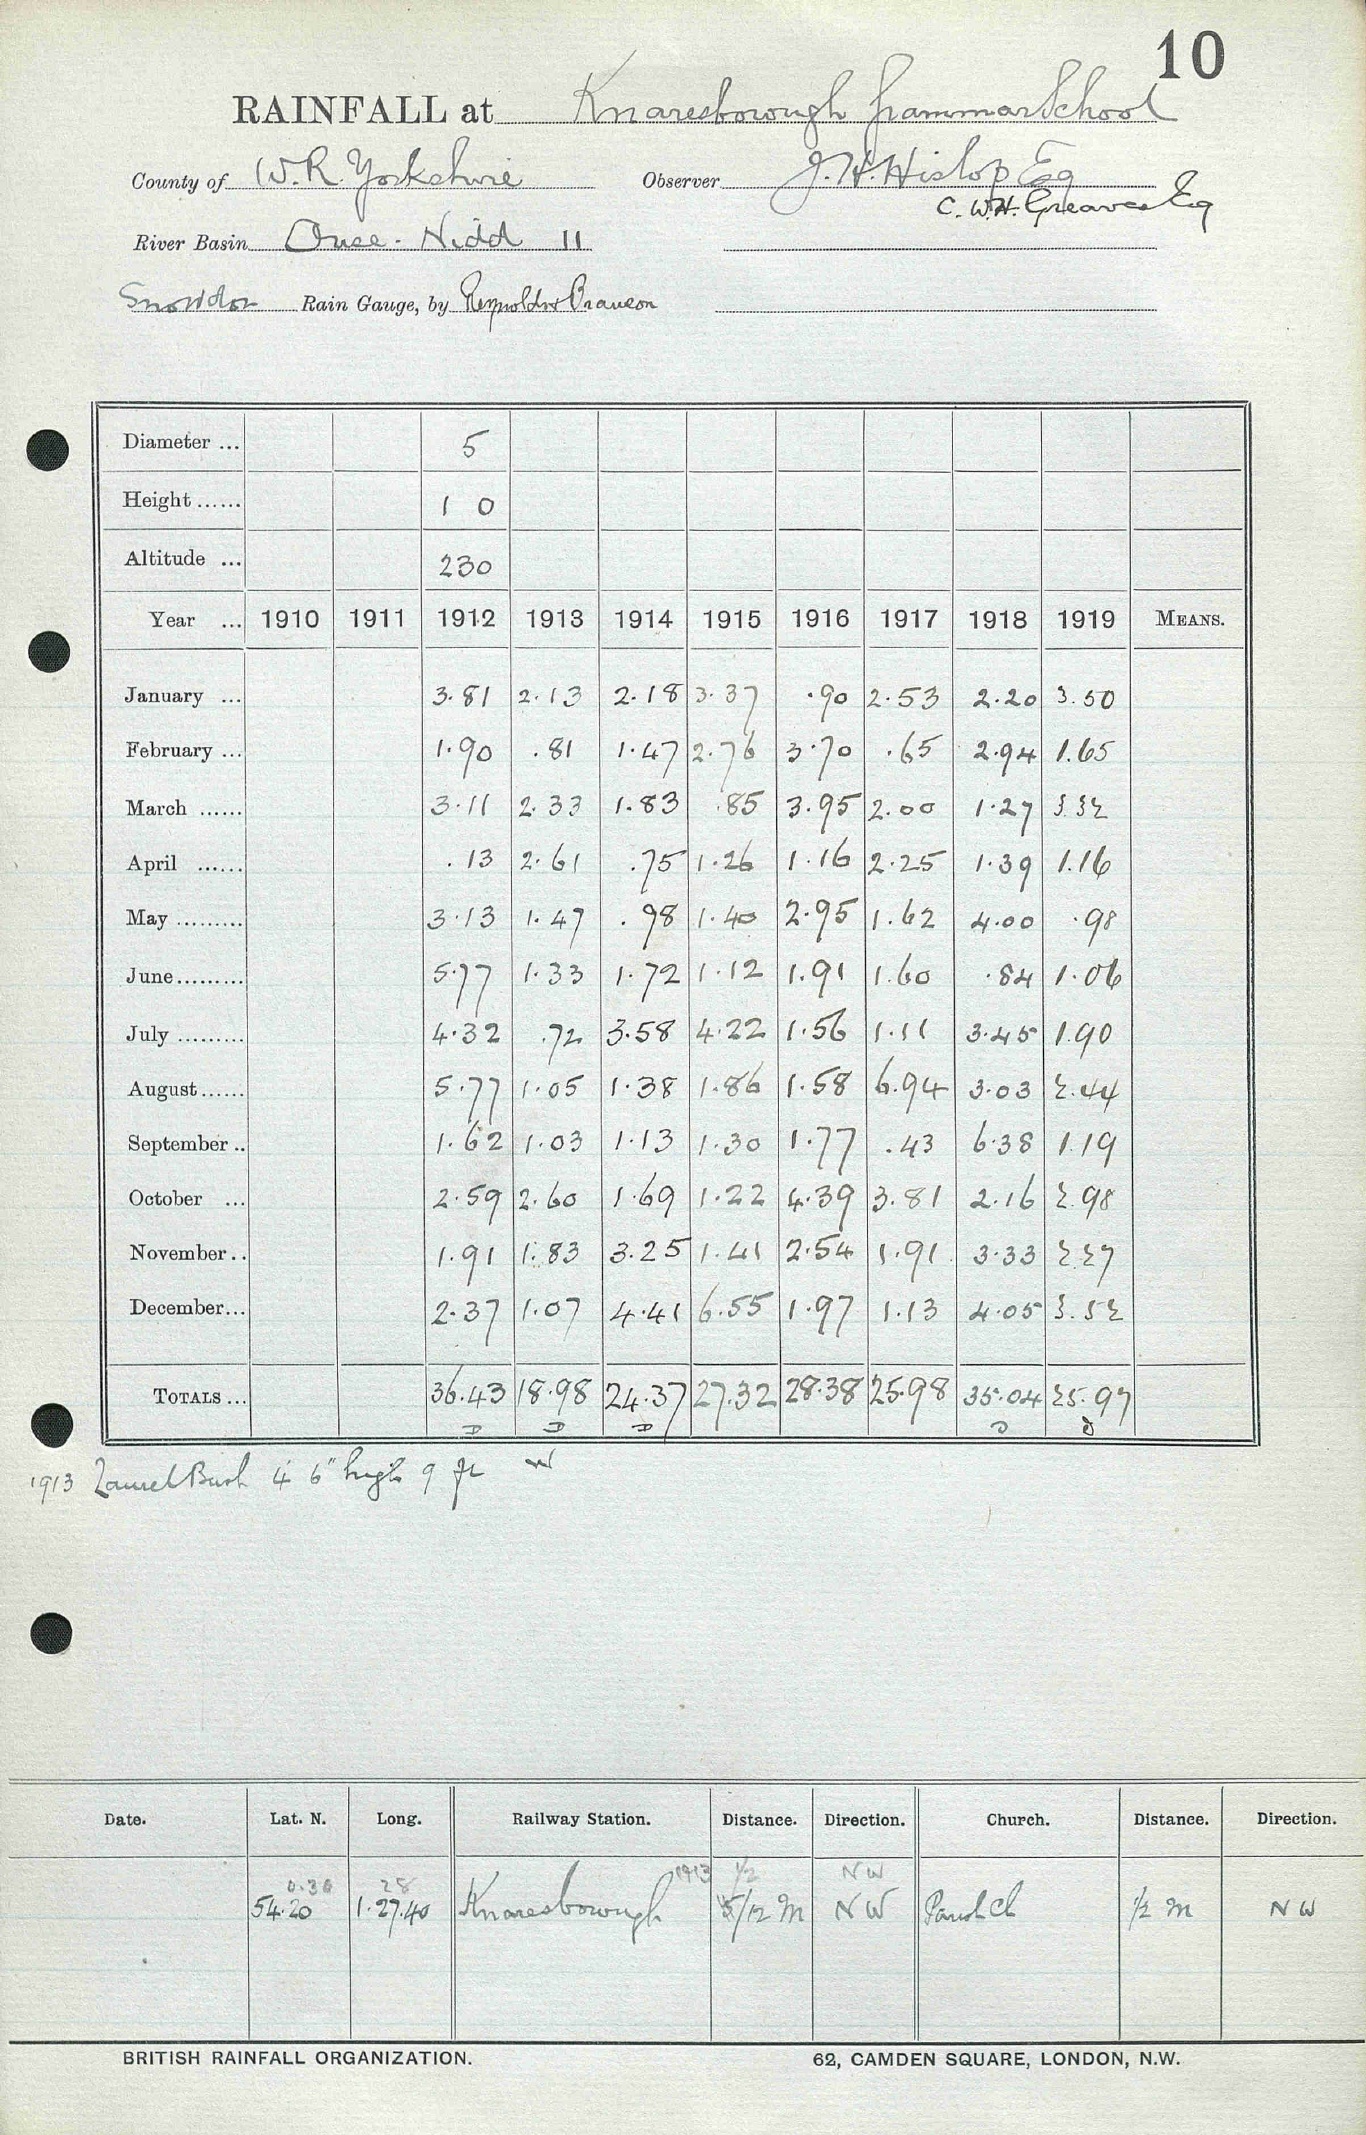 10
RAINFALL at Knaresborough Grammar School
County of W.R. Yorkshire Observer J. H. Hislop Esq
C. W. H. Greaves Esq
River Basin Ouse - Nidd 11
Snowdon Rain Gauge, by Reynolds & Branson
Diameter ... 5
Height ...... 1 0
Altitude ... 230
Year ... 1910 1911 1912 1913 1914 1915 1916 1917 1918 1919 MEANS.
January ... 3.81 2.13 2.18 3.37 .90 2.53 2.20 3.50
February ... 1.90 .81 1.47 2.76 3.70 .65 2.94 1.65
March ...... 3.11 2.33 1.83 .85 3.95 2.00 1.27 3.32
April ...... .13 2.61 .75 1.26 1.16 2.25 1.39 1.16
May ......... 3.13 1.47 .98 1.40 2.95 1.62 4.00 .98
June ......... 5.77 1.33 1.72 1.12 1.91 1.60 .84 1.06
July ......... 4.32 .72 3.58 4.22 1.56 1.11 3.45 1.90
August ...... 5.77 1.05 1.38 1.86 1.58 6.94 3.03 2.44
September .. 1.62 1.03 1.13 1.30 1.77 .43 6.38 1.19
October ... 2.59 2.60 1.69 1.22 4.39 3.81 2.16 2.98
November .. 1.91 1.83 3.25 1.41 2.54 1.91 3.33 2.27
December ... 2.37 1.07 4.41 6.55 1.97 1.13 4.05 3.52
TOTALS ... 36.43 18.98 24.37 27.32 28.38 25.98 35.04 25.97
D D D D D
1913 Laurel Bush 4' 6" high 9 ft W
Date. Lat. N. Long. Railway Station. Distance. Direction. Church. Distance. Direction.
0.30 28 1913 1/2 NW
54.20 1.27.40 Knaresborough 5/12 m NW Parish Ch 1/2 m NW
BRITISH RAINFALL ORGANIZATION. 62, CAMDEN SQUARE, LONDON, N.W.